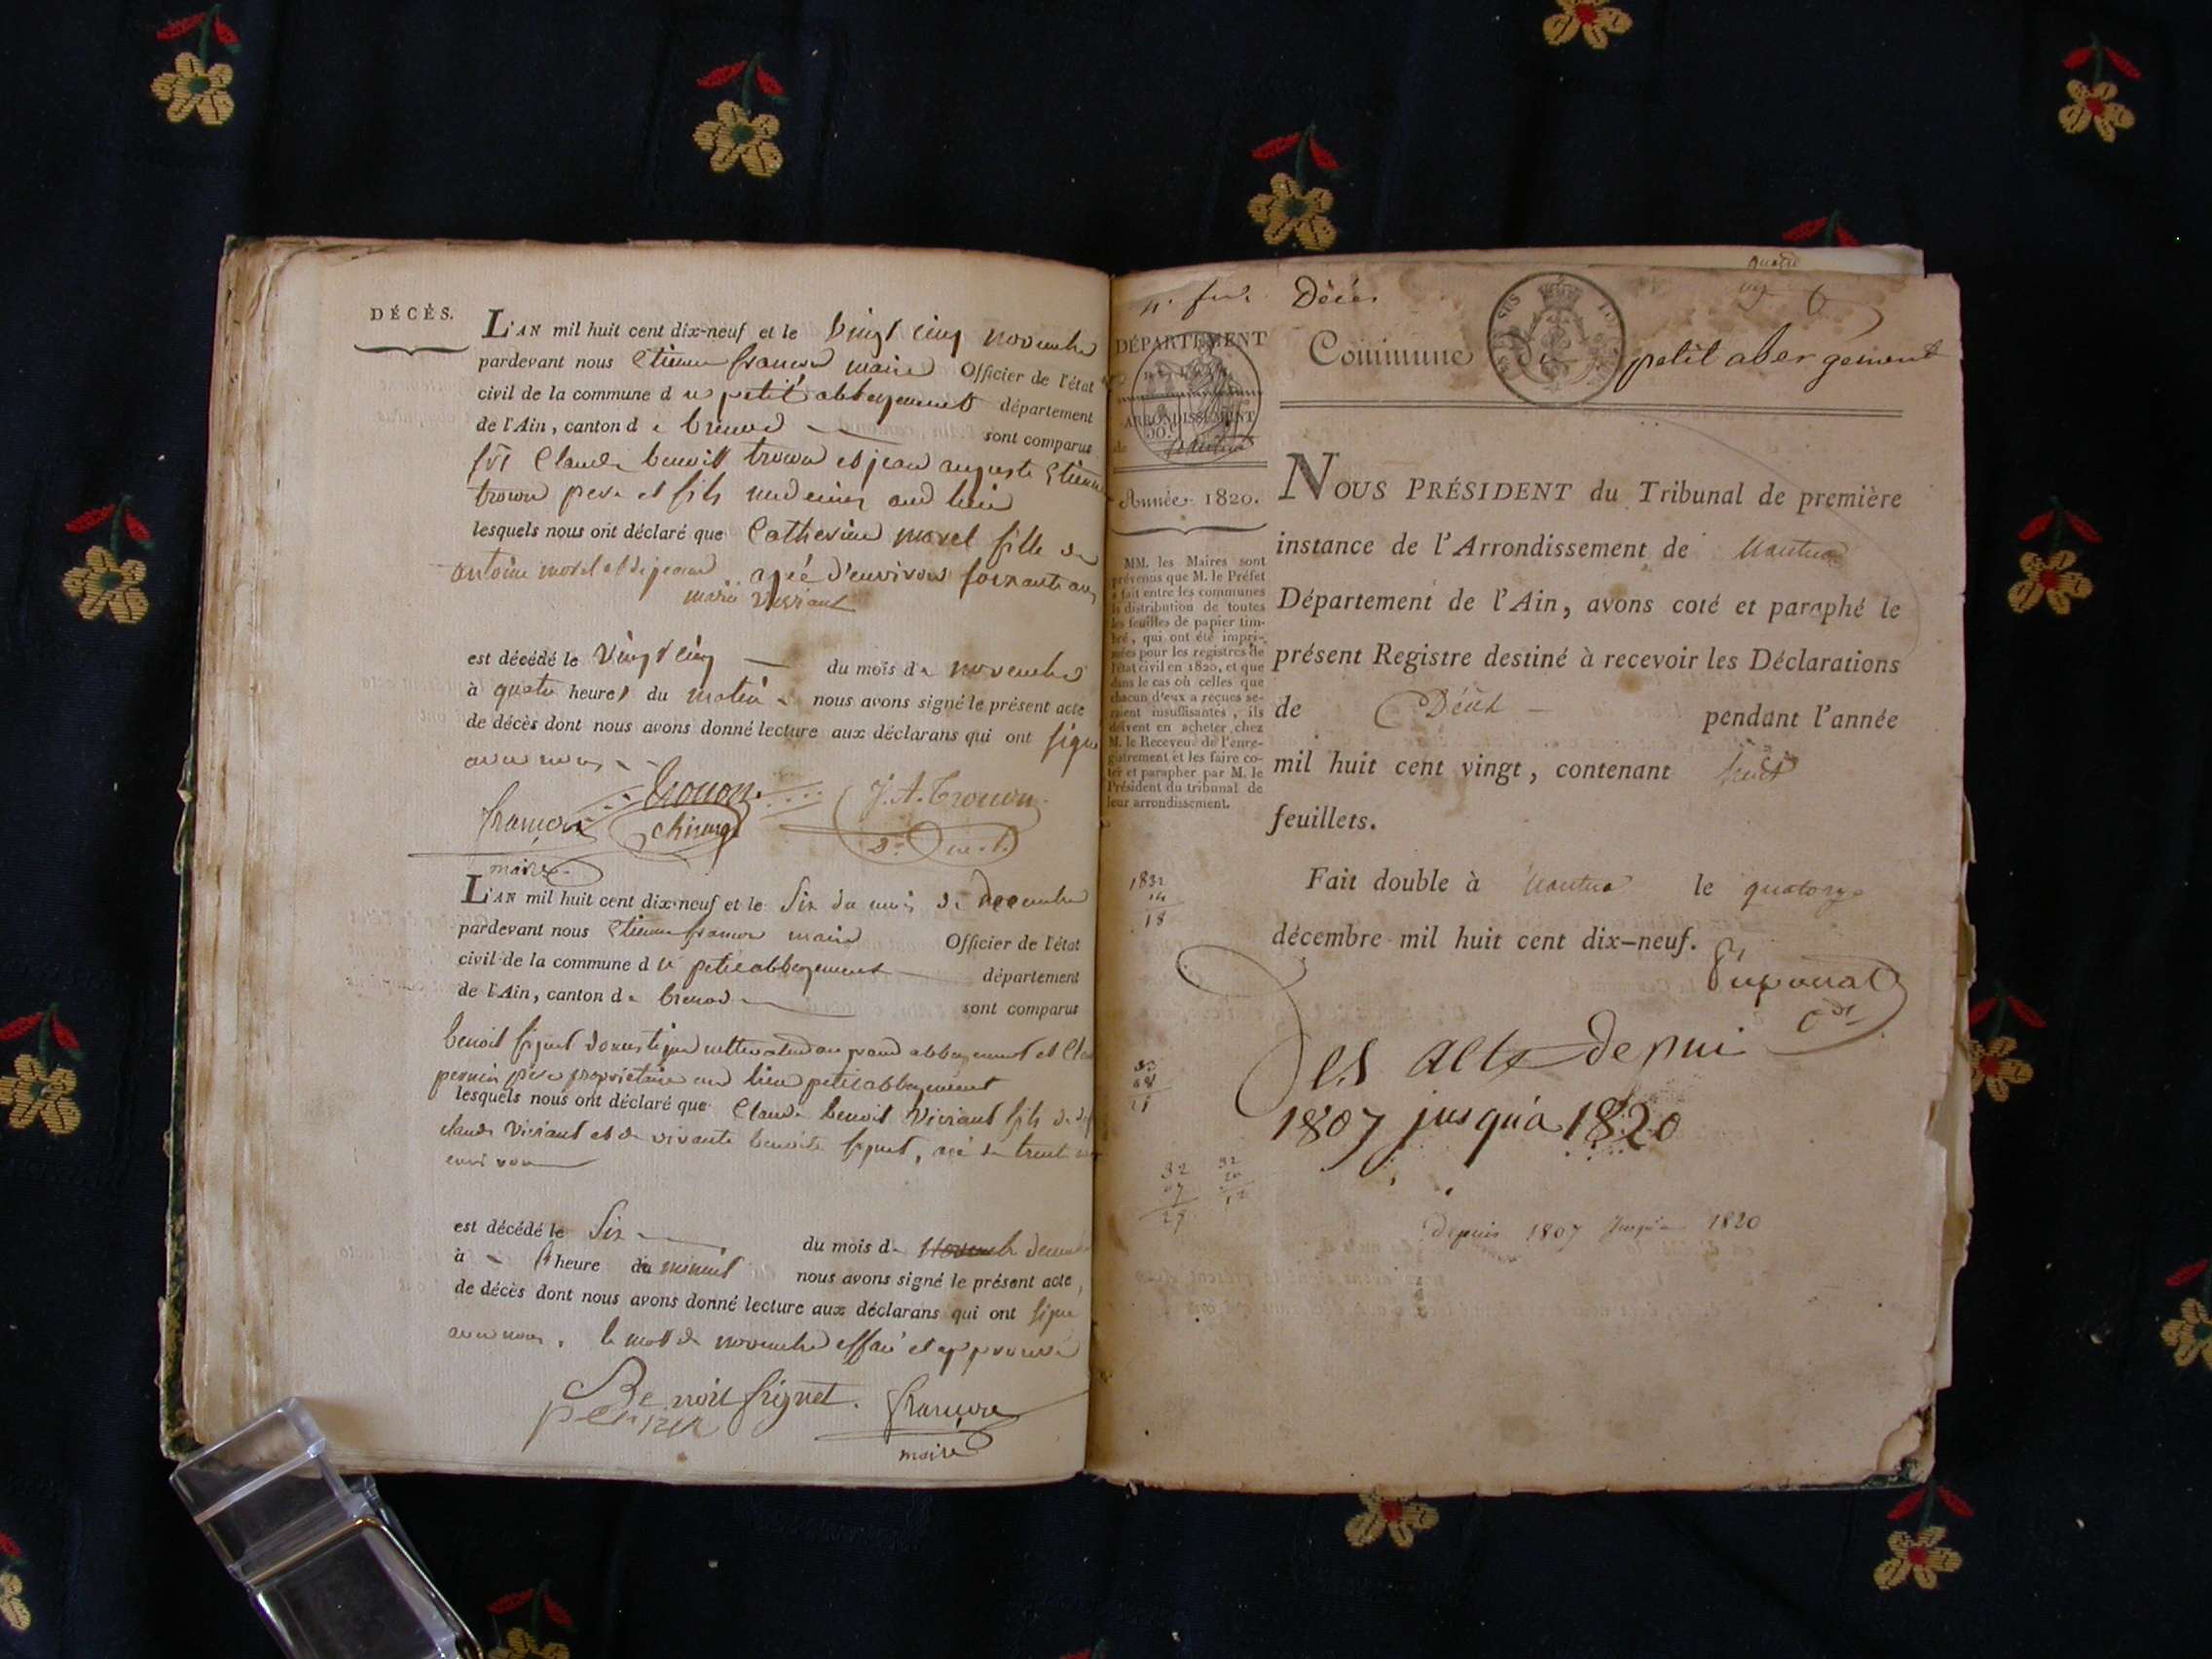 DÉCÈS.
L'AN mil huit cent dix-neuf et le vingt cinq novembre
pardevant nous Etienne françon maire Officier de l'état
civil de la commune d u petit abbergement département
de l'Ain, canton d e brenod sont comparus
Claude benoit trouon et jean auguste Etienne
trouon pere et fils medecins aud lieu
lesquels nous ont déclaré que Catherine morel fille de
antoine morel agée d'environ soixante ans
mariée viviant
est décédé le vingt cinq du mois de novembre
à quatre heures du matin nous avons signé le présent acte
de décès dont nous avons donné lecture aux déclarans qui ont signé
avec nous
françon trouon J. A. Trouon
chirurg
maire
L'AN mil huit cent dix-neuf et le Six du mois de decembre
pardevant nous Etienne françon maire Officier de l'état
civil de la commune d u petit abbergement département
de l'Ain, canton de brenod sont comparus
benoit signet domestique cultivateur au grand abbergement et
perrin père propriétaire aud lieu petit abbergement
lesquels nous ont déclaré que Claude benoit Viviant fils de
claude viviant et de vivante benoite signet, agé de trente
environ
est décédé le Six du mois de decembre
à heure de minuit nous avons signé le présent acte,
de décès dont nous avons donné lecture aux déclarans qui ont signé
avec nous. le mot de novembre effacé et approuvé
Benoit signet. françon
perrin
maire
Décès
DÉPARTEMENT
Commune du petit abergement
ARRONDISSEMENT
de Nantua
Année 1820.
MM. les Maires sont
prévenus que M. le Préfet
a fait entre les communes
la distribution de toutes
les feuilles de papier tim-
bré, qui ont été impri-
mées pour les registres de
l'état civil en 1820, et que
dans le cas où celles que
chacun d'eux a reçues se-
raient insuffisantes, ils
doivent en acheter chez
M. le Receveur de l'enre-
gistrement et les faire co-
ter et parapher par M. le
Président du tribunal de
leur arrondissement.
NOUS PRÉSIDENT du Tribunal de première
instance de l'Arrondissement de Nantua
Département de l'Ain, avons coté et paraphé le
présent Registre destiné à recevoir les Déclarations
de Décès pendant l'année
mil huit cent vingt, contenant huit
feuillets.
Fait double à Nantua le quatorze
décembre mil huit cent dix-neuf.
1832
14
18
Les acte depui
1807 jusqu'a 1820
32
07
25
32
20
12
depuis 1807 jusqu'a 1820